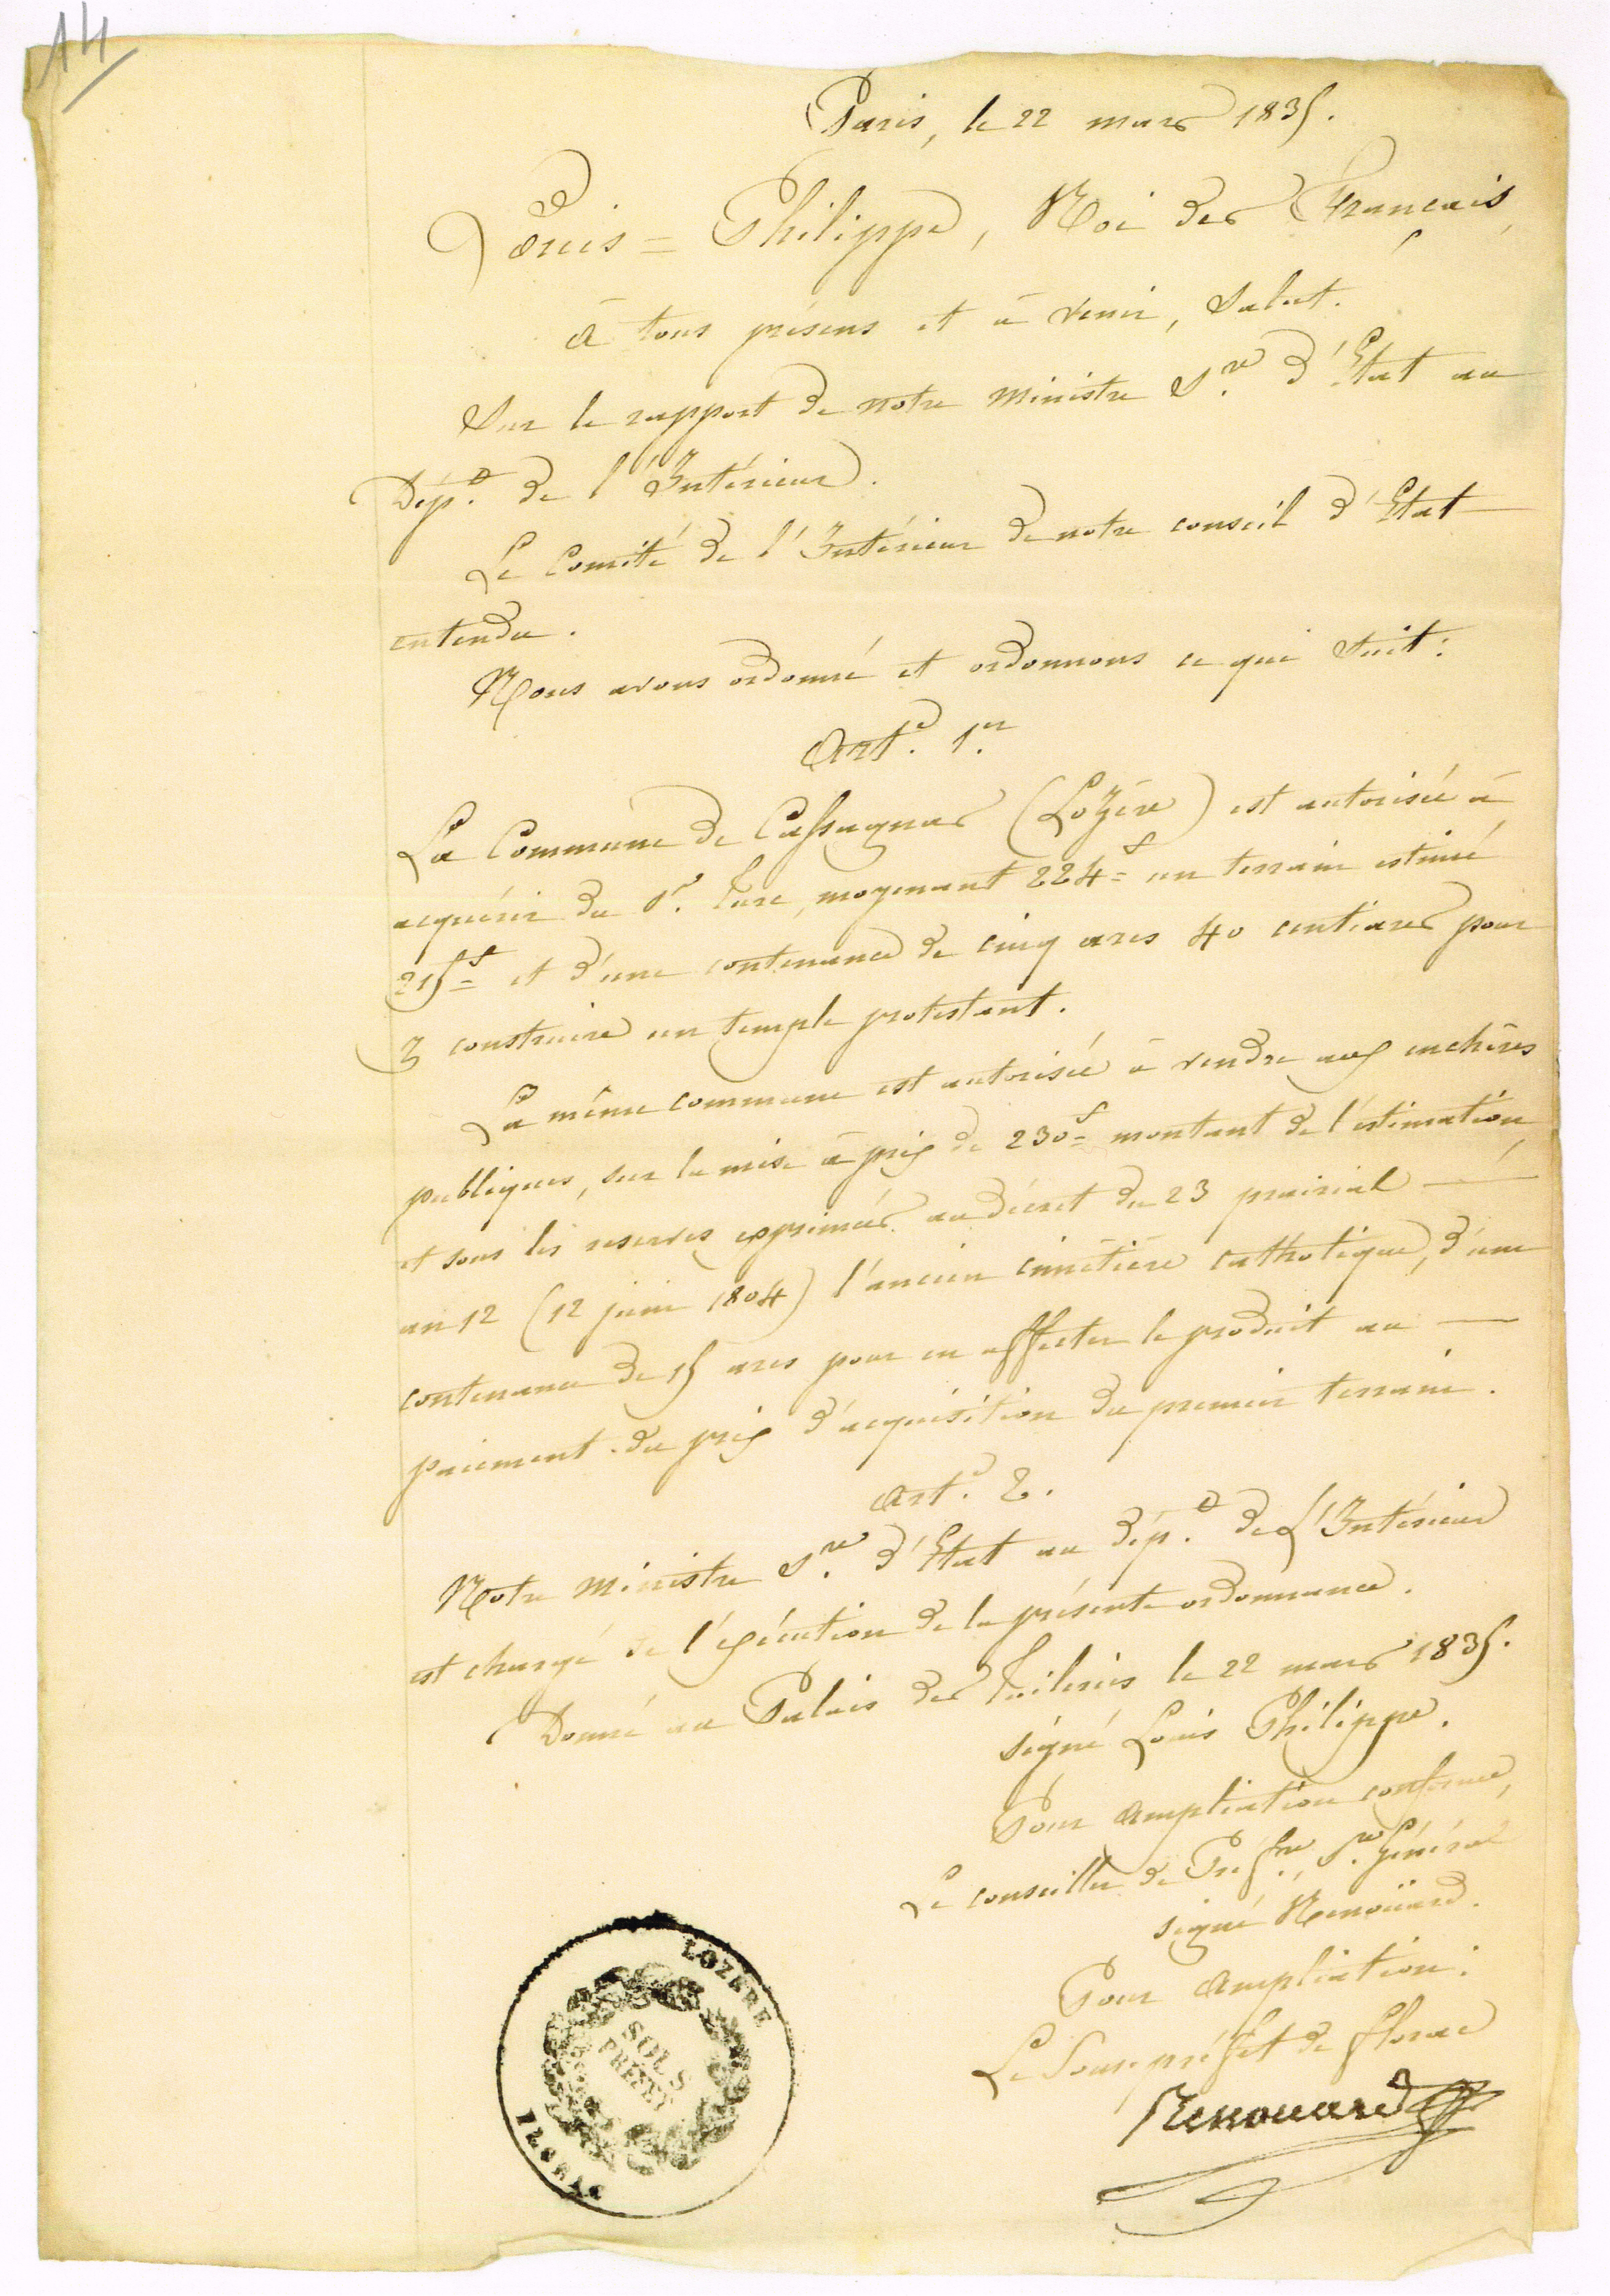 14
Paris, le 22 mars 1835.
Louis = Philippe, Roi des Français,
à tous présens et à venir, Salut.
Sur le rapport de notre Ministre S.re d'Etat au
Dép.t de l'Intérieur.
Le Comité de l'Intérieur de notre conseil d'Etat
entendu.
Nous avons ordonné et ordonnons ce qui suit:
Art.e 1.er
La Commune de Cassagnas (Lozère) est autorisée à
acquérir du S.r Turc, moyenant 224f= un terrain estimé
215f= et d'une contenance de cinq ares 40 centiares pour
y construire un temple protestant.
La même commune est autorisée à vendre aux enchères
publiques, sur la mise à prix de 230f= montant de l'estimation,
et sous les reserves exprimées au décret du 23 prairial
an 12 (12 juin 1804) l'ancien cimetière catholique, d'une
contenance de 15 ares pour en affecter le produit au
paiement du prix d'acquisition du premier terrain.
Art.e 2.
Notre Ministre S.re d'Etat au dép.t de L'Intérieur
est chargé de l'exécution de la présente ordonnance.
Donné au Palais des Tuileries le 22 mars 1835.
signé Louis Philippe.
Pour ampliation conforme,
Le conseiller de Préf.re, S.re Général
signé Renoüard.
Pour ampliation:
Le Sous-préfet de florac
Renouard
LOZÈRE
SOUS
PRÉFET
FLORAC